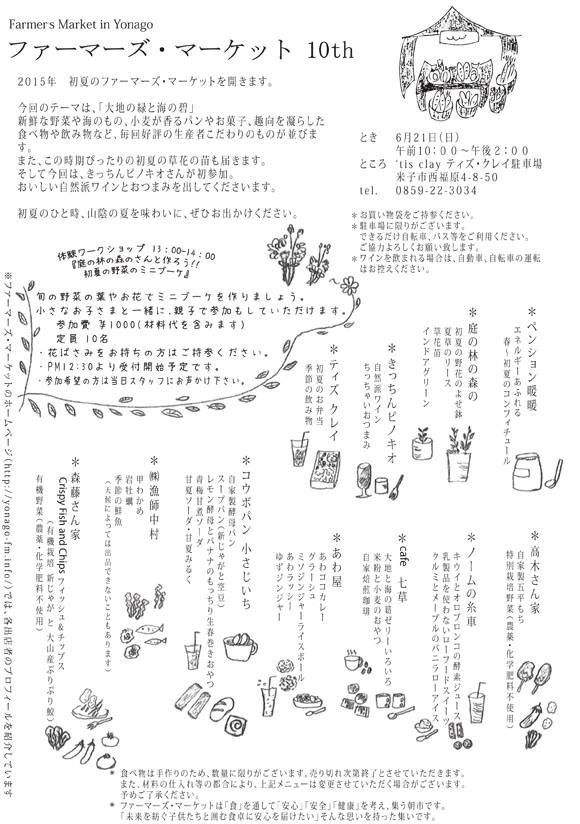 Farmer's Market in Yonago
ファーマーズ・マーケット 10th
2015年　初夏のファーマーズ・マーケットを開きます。
今回のテーマは、「大地の緑と海の碧」
新鮮な野菜や海のもの、小麦が香るパンやお菓子、趣向を凝らした
食べ物や飲み物など、毎回好評の生産者こだわりのものが並びま
す。
また、この時期ぴったりの初夏の草花の苗も届きます。
そして今回は、きっちんピノキオさんが初参加。
おいしい自然派ワインとおつまみを出してくださいます。
初夏のひと時、山陰の夏を味わいに、ぜひお出かけください。
とき　6月21日(日)
午前10:00～午後2:00
ところ　'tis clay ティズ・クレイ駐車場
米子市西福原4-8-50
tel.　0859-22-3034
＊お買い物袋をご持参ください。
＊駐車場に限りがございます。
できるだけ自転車、バス等をご利用ください。
ご協力よろしくお願い致します。
＊ワインを飲まれる場合は、自動車、自転車の運転
はお控えください。
体験ワークショップ 13:00-14:00
『庭の林の森のさんと作ろう!!
初夏の野菜のミニブーケ』
旬の野菜の葉やお花でミニブーケを作りましょう。
小さなお子さまと一緒に、親子で参加もしていただけます。
参加費 ¥1000(材料代を含みます)
定員 10名
・花ばさみをお持ちの方はご持参ください。
・PM12:30より受付開始予定です。
・参加希望の方は当日スタッフにお声かけ下さい。
＊ペンション暖暖
エネルギーあふれる
春～初夏のコンフィチュール
＊庭の林の森の
初夏の野花のよせ鉢
夏草のリース
草花苗
インドアグリーン
＊きっちんピノキオ
自然派ワイン
ちっちゃいおつまみ
＊ティズ クレイ
初夏のお弁当
季節の飲み物
＊高木さん家
自家製五平もち
特別栽培野菜(農薬・化学肥料不使用)
＊ノームの糸車
キウイとオロブロンコの酵素ジュース
乳製品を使わないローフードスイーツ
クルミとメープルのバニラローアイス
＊cafe 七草
大地と海の葛ゼリーいろいろ
米粉と小麦のおやつ
自家焙煎珈琲
＊あわ屋
あわココカレー
グラーシュ
ミソジンジャーライスボール
あわラッシー
ゆずジンジャー
＊コウボパン 小さじいち
自家製酵母パン
スープパン(新じゃがと空豆)
レモン酵母とバナナのもっちり生春巻きおやつ
青梅甘煮ソーダ
甘夏ソーダ・甘夏みるく
＊㈱漁師中村
甲わかめ
岩牡蠣
季節の鮮魚
(天候によっては出品できないこともあります)
＊森藤さん家
Crispy Fish and Chips フィッシュ&チップス
(有機栽培 新じゃが と 大山産ぷりぷり鮫)
有機野菜(農薬・化学肥料不使用)
※ファーマーズ・マーケットのホームページ(http://yonago-fm.info/)では、各出店者のプロフィールを紹介しています
＊ 食べ物は手作りのため、数量に限りがございます。売り切れ次第終了とさせていただきます。
また、材料の仕入れ等の都合により、上記メニューは変更させていただく場合がございます。
予めご了承ください。
＊ ファーマーズ・マーケットは「食」を通して「安心」「安全」「健康」を考え、集う朝市です。
「未来を紡ぐ子供たちと囲む食卓に安心を届けたい」そんな思いを持った集いです。